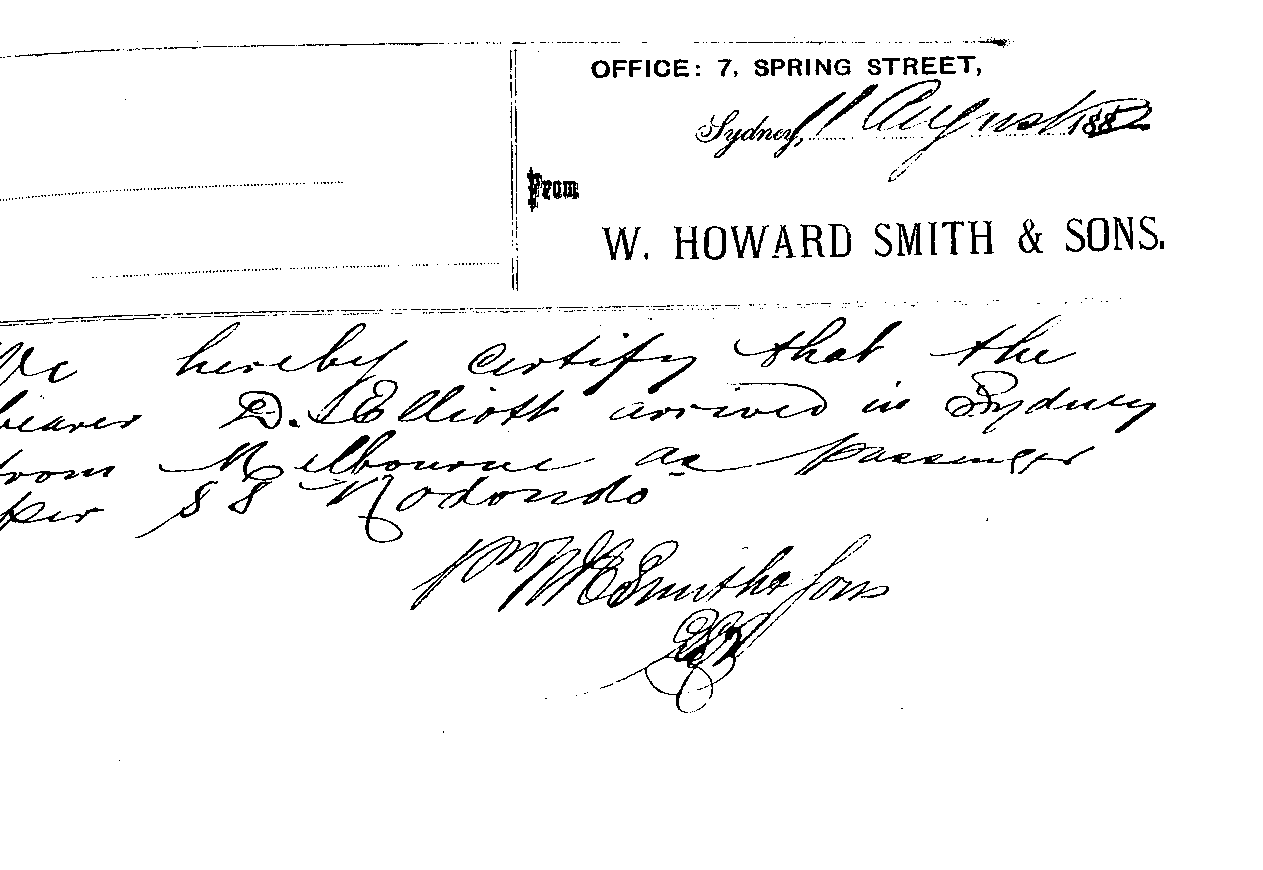 OFFICE: 7, SPRING STREET,
Sydney, 11 August 1882
From
W. HOWARD SMITH & SONS.
We hereby certify that the
bearer D. Elliott arrived in Sydney
from Melbourne as passenger
per SS Rodondo
pro W H Smith & Sons